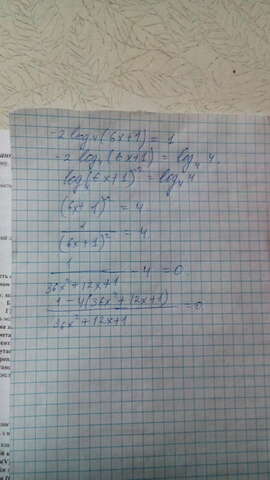 -2 log₄(6x+1) = 1
-2 log₄(6x+1) = log₄ 4.
log₄(6x+1)⁻² = log₄ 4
(6x+1)⁻² = 4
1/(6x+1)² = 4
1/(36x²+12x+1) - 4 = 0
(1-4(36x²+12x+1))/(36x²+12x+1) = 0